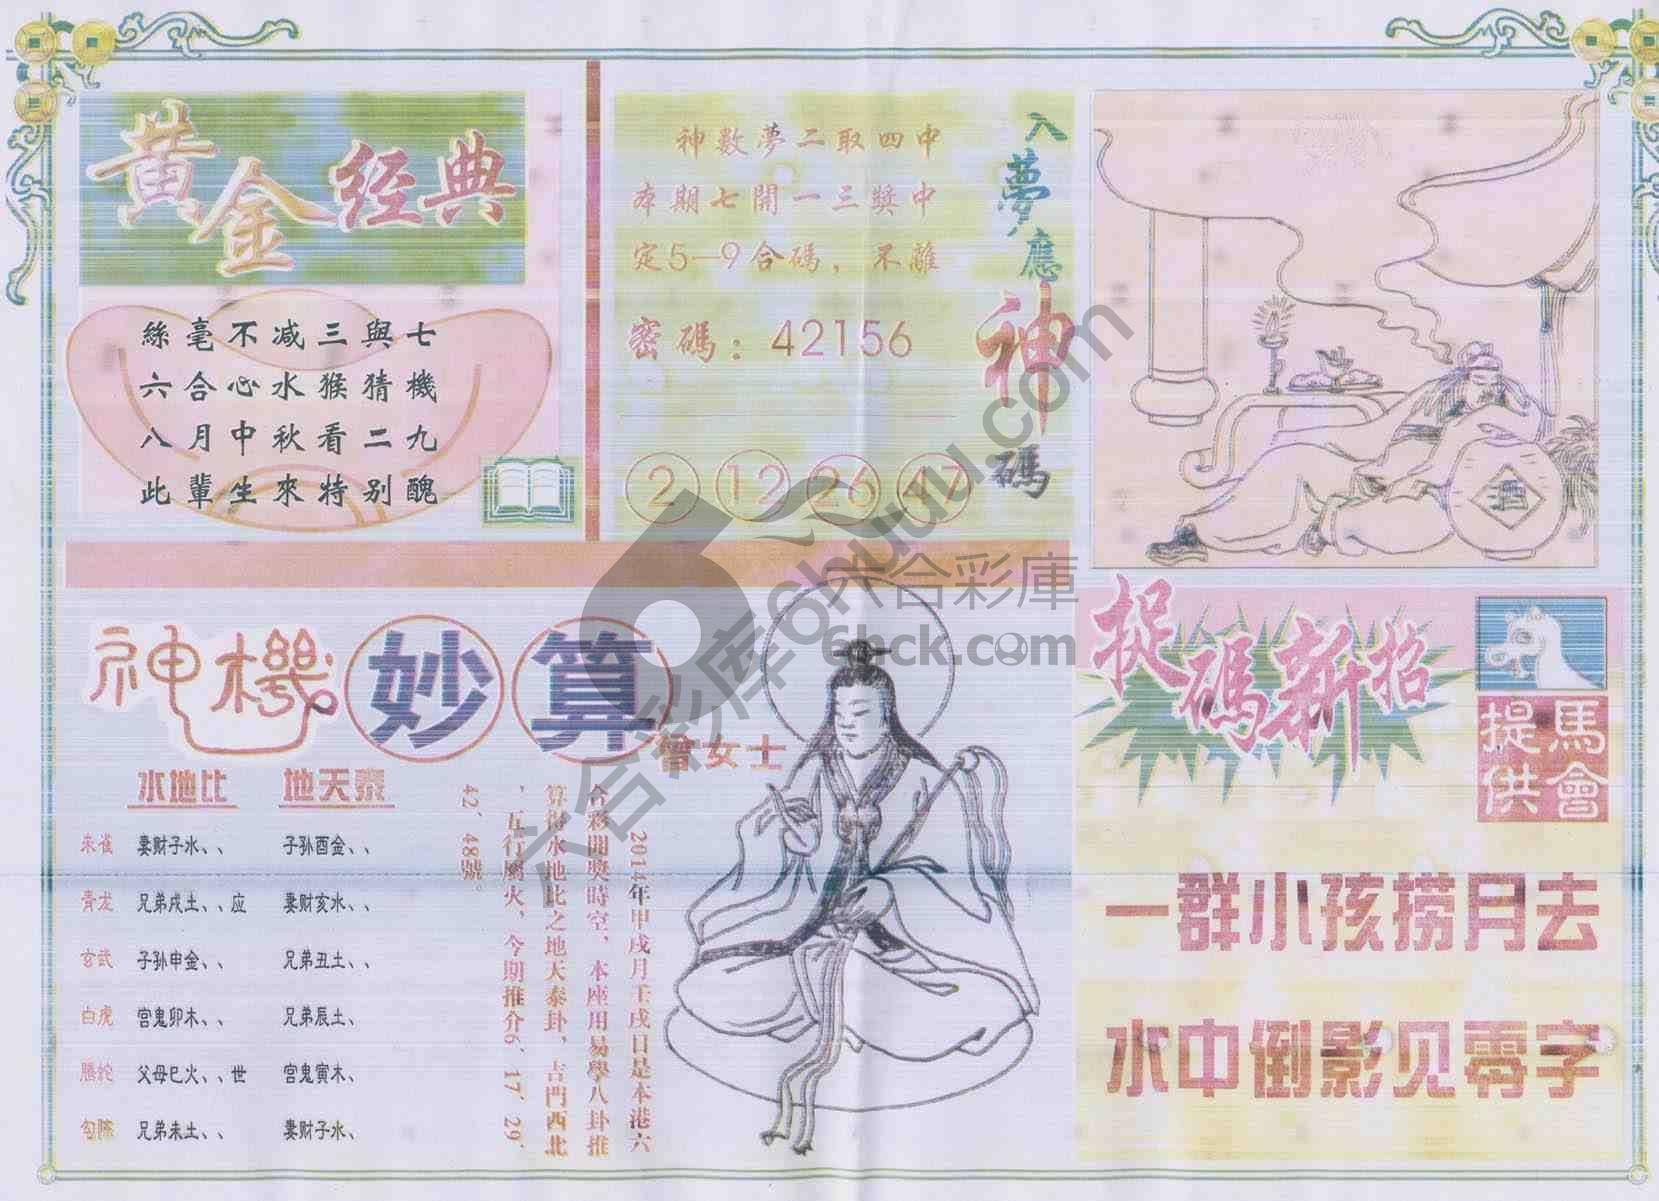 黄金经典
絲毫不减三與七
六合心水猴猜機
八月中秋看二九
此輩生來特别醜
神數夢二取四中
本期七開一三獎中
定5—9合碼，不離
密碼：42156
2 12 26 47
入夢應神碼
酒
神機妙算
曾女士
水地比 地天泰
朱雀 妻财子水、、 子孙酉金、、
青龙 兄弟戌土、、应 妻财亥水、、
玄武 子孙申金、、 兄弟丑土、、
白虎 官鬼卯木、、 兄弟辰土、
螣蛇 父母巳火、、世 官鬼寅木、
勾陈 兄弟未土、、 妻财子水、
2014年甲戌月壬戌日是本港六
合彩開獎時空、本座用易學八卦推
算得水地比之地天泰卦，吉門西北
，五行屬火、今期推介6、17、29、
42、48號。
捉碼新招
馬會提供
一群小孩捞月去
水中倒影见零字
六合彩库 6huuu.com
六合彩庫
6hck.com